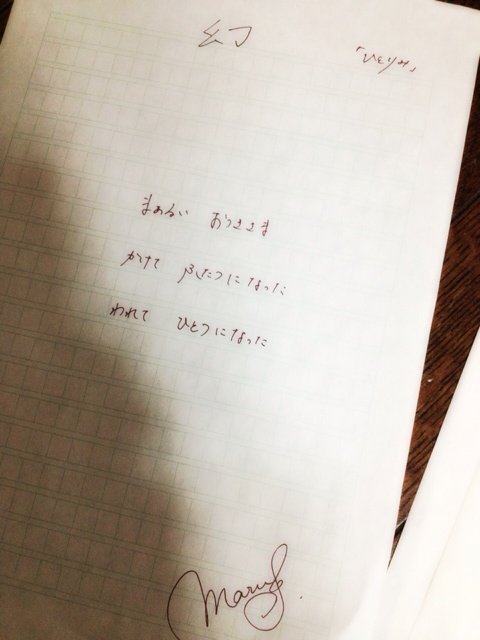 幻
「ひとりみ」
まあるい おつきさま
かけて ふたつになった
われて ひとつになった